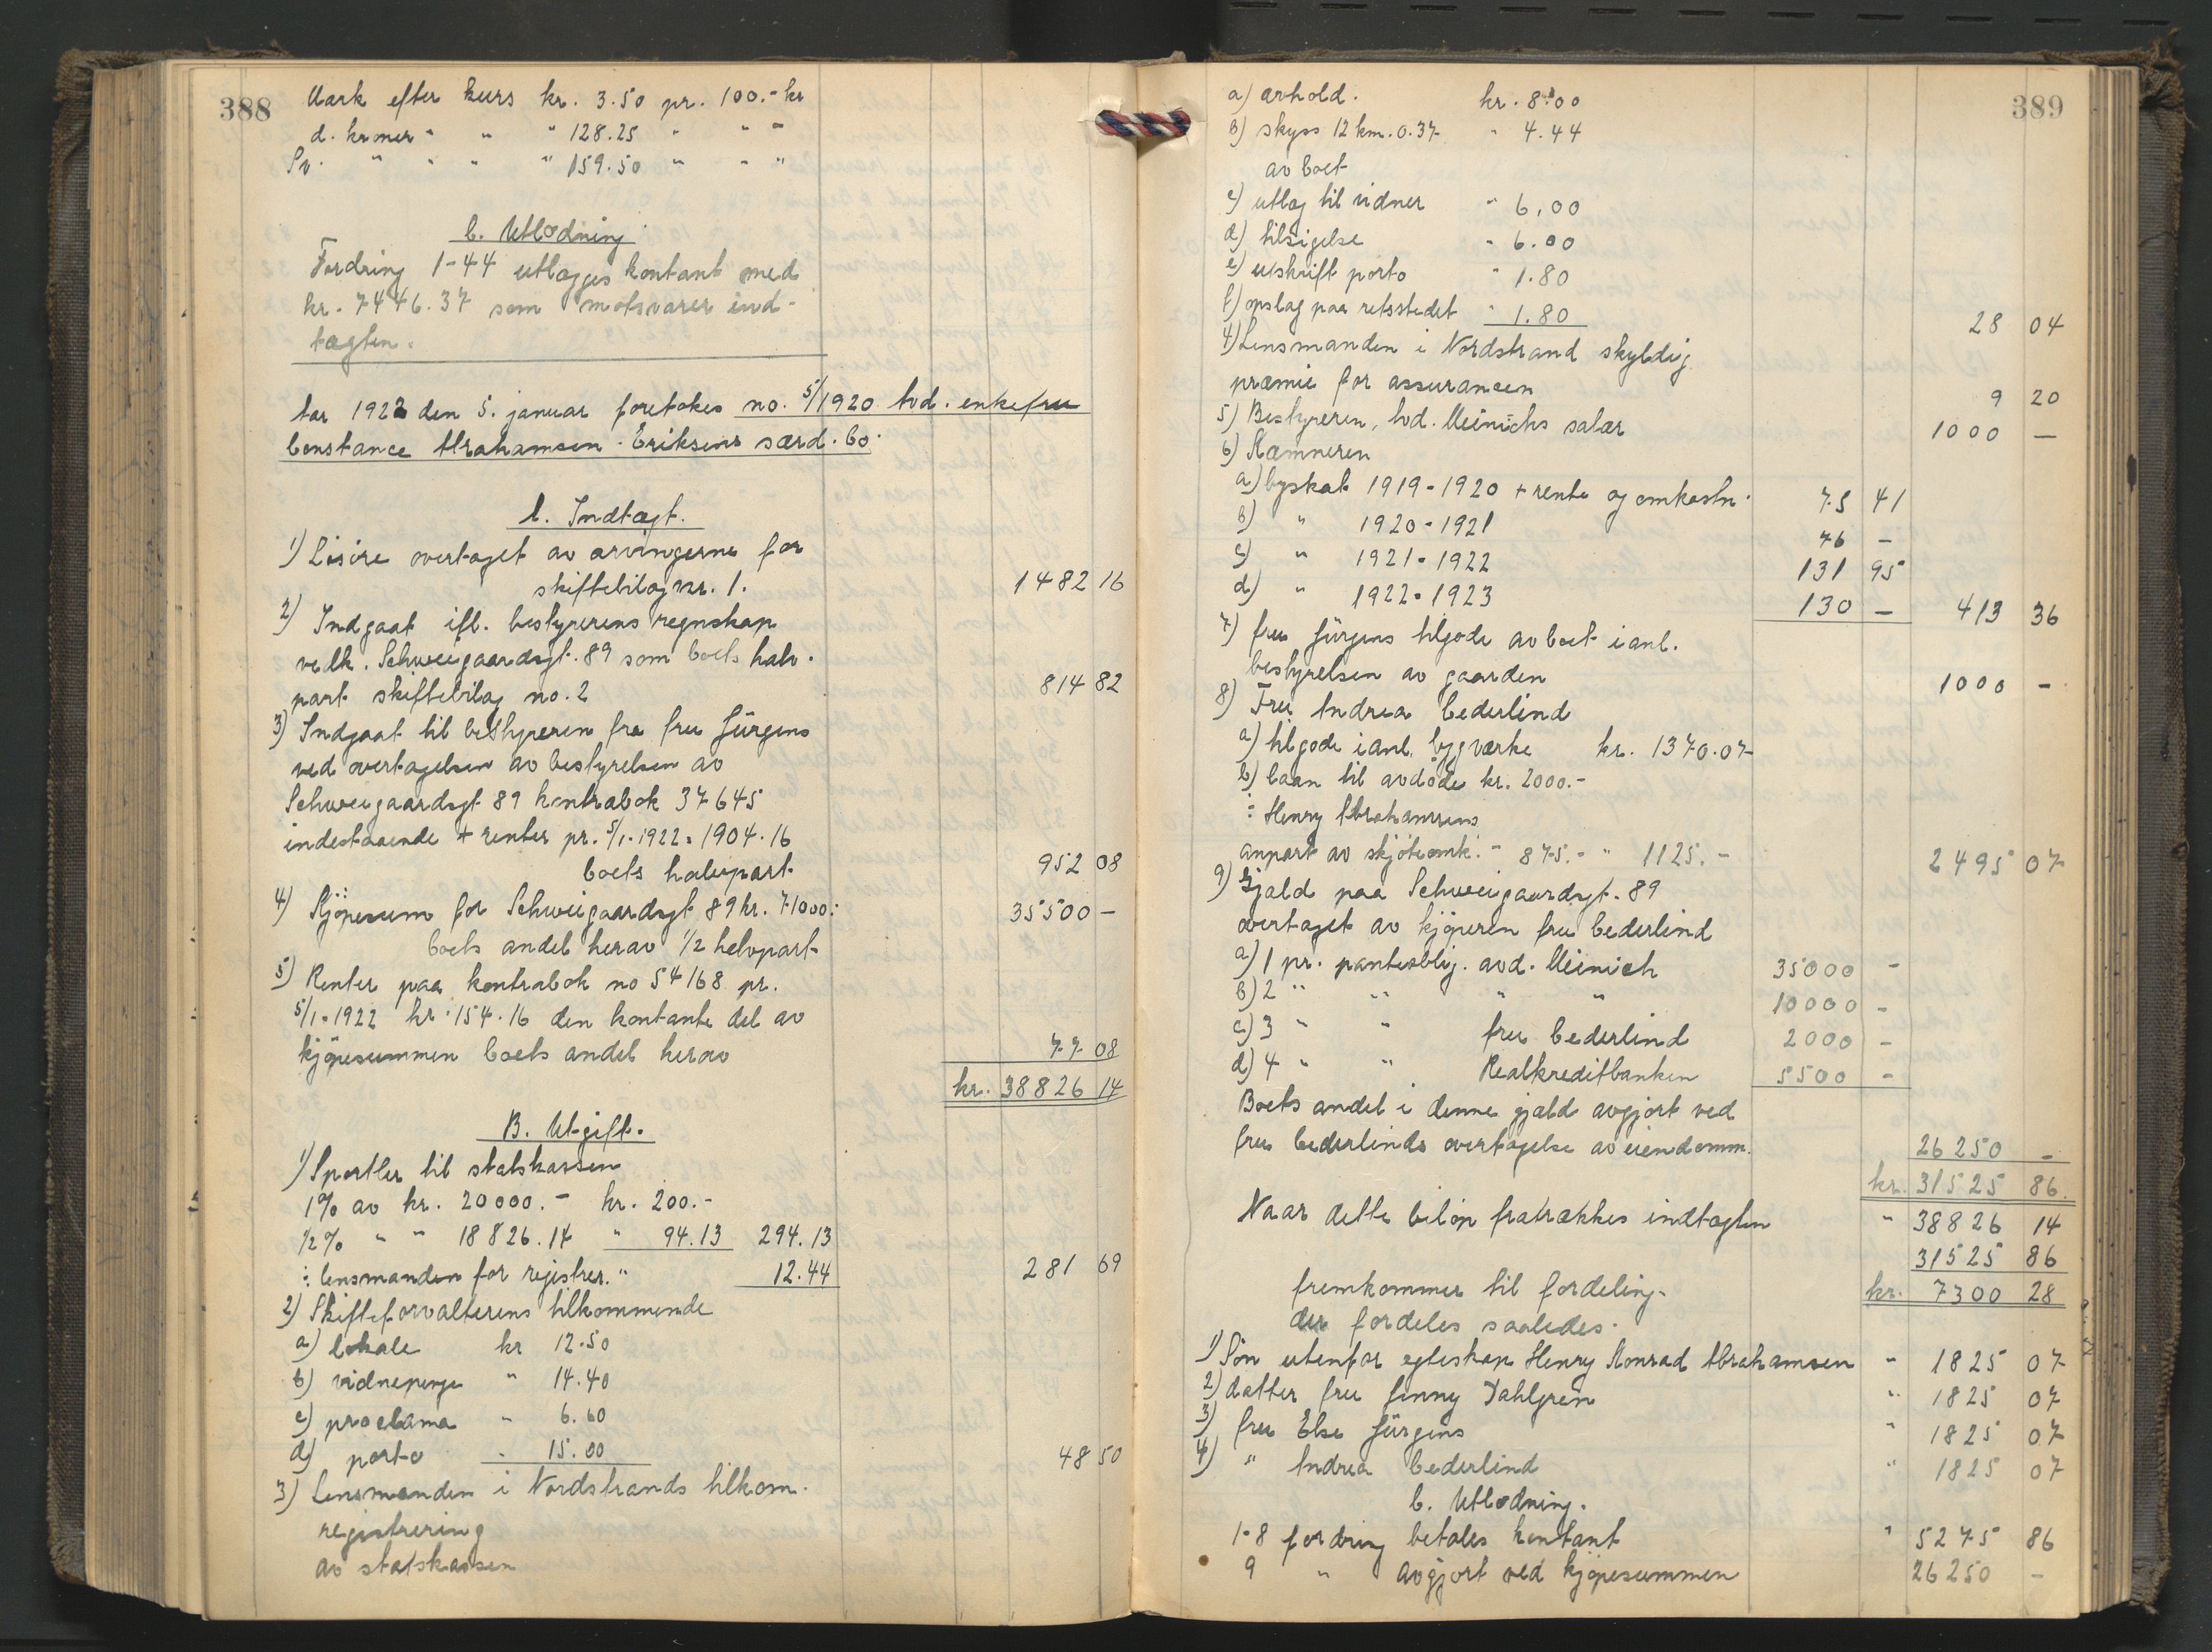 388
Mark efter kurs kr. 3.50 pr. 100.- kr
d. kroner " " " 128.25 " " "
Sv. " " " " 159.50 " " "
C. Utlodning
Fordring 1-44 utlægges kontant med
kr. 7446.37 som motsvarer ind-
tægten.
Aar 1922 den 5. januar foretokes no. 5/1920 avd. enkefru
Constance Abrahamsen-Eriksens særd. bo.
A. Indtægt.
1) Løsøre overtaget av arvingerne for
skiftebilag nr. 1. 1482 16
2) Indgaat ifl. bestyrerens regnskap
vedk. Schweigaardsgt. 89 som boets halv-
part skiftebilag no. 2 814 82
3) Indgaat til bestyreren fra fru Jürgens
ved overtagelsen av bestyrelsen av
Schweigaardsgt 89 kontrabok 37645
indestaaende + renter pr. 5/1-1922 = 1904.16
boets halvpart 952 08
4) Kjöpesum for Schweigaardsgt 89 kr. 71000.-
boets andel herav 1/2 halvpart 35500 -
5) Renter paa kontrabok no 54168 pr.
5/1-1922 kr. 154.16 den kontante del av
kjöpesummen boets andel herav 77 08
kr. 38826 14
B. Utgift.
1) Sportler til statskassen
1% av kr. 20000.- kr. 200.-
1/2% " " 18826.14 " 94.13 294.13
÷ lensmanden for registrer. " 12.44 281 69
2) Skifteforvalterens tilkommende
a) lokale kr 12.50
b) vidnepenge " 14.40
c) proclama " 6.60
d) porto " 15.00 48 50
3) Lensmanden i Nordstrands tilkom.
registrering
av statskassen
389
a) avhold. kr. 8.00
b) skyss 12 km. 0.37 " 4.44
av boet
c) utlæg til vidner " 6.00
d) tilsigelse " 6.00
e) utskrift porto " 1.80
f) opslag paa retsstedet " 1.80 28 04
4) Lensmanden i Nordstrand skyldig
præmie for assurancen 9 20
5) Bestyreren, avd. Meinichs salær 1000 -
6) Kæmneren
a) byskat 1919-1920 + rente og omkostn. 75 41
b) " 1920-1921 76 -
c) " 1921-1922 131 95
d) " 1922-1923 130 - 413 36
7) fru Jürgens tilgode av boet i anl.
bestyrelsen av gaarden 1000 -
8) Fru Andrea Cederlind
a) tilgode i anl. bygværke kr. 1370.07
b) laan til avdöde kr. 2000.-
÷ Henry Abrahamsens
anpart av skjöteomk. - 875.- " 1125.- 2495 07
9) Gjæld paa Schweigaardsgt. 89
overtaget av kjöperen fru Cederlind
a) 1 pr. panteoblig. avd. Meinich 35000 -
b) 2 " " " " 10000 -
c) 3 " " fru Cederlind 2000 -
d) 4 " " Realkreditbanken 5500 -
Boets andel i denne gjæld avgjort ved
fru Cederlinds overtagelse av eiendomm. 26250 -
kr. 31525 86
Naar dette belöp fratrækkes indtægten " 38826 14
31525 86
fremkommer til fordeling. kr. 7300 28
der fordeles saaledes.
1) Sön utenfor egteskap Henry Konrad Abrahamsen " 1825 07
2) datter fru Jenny Dahlgren " 1825 07
3) fru Else Jürgens " 1825 07
4) " Andrea Cederlind " 1825 07
C. Utlodning.
1-8 fordring betales kontant " 5275 86
9 " avgjort ved kjöpesummen 26250 -